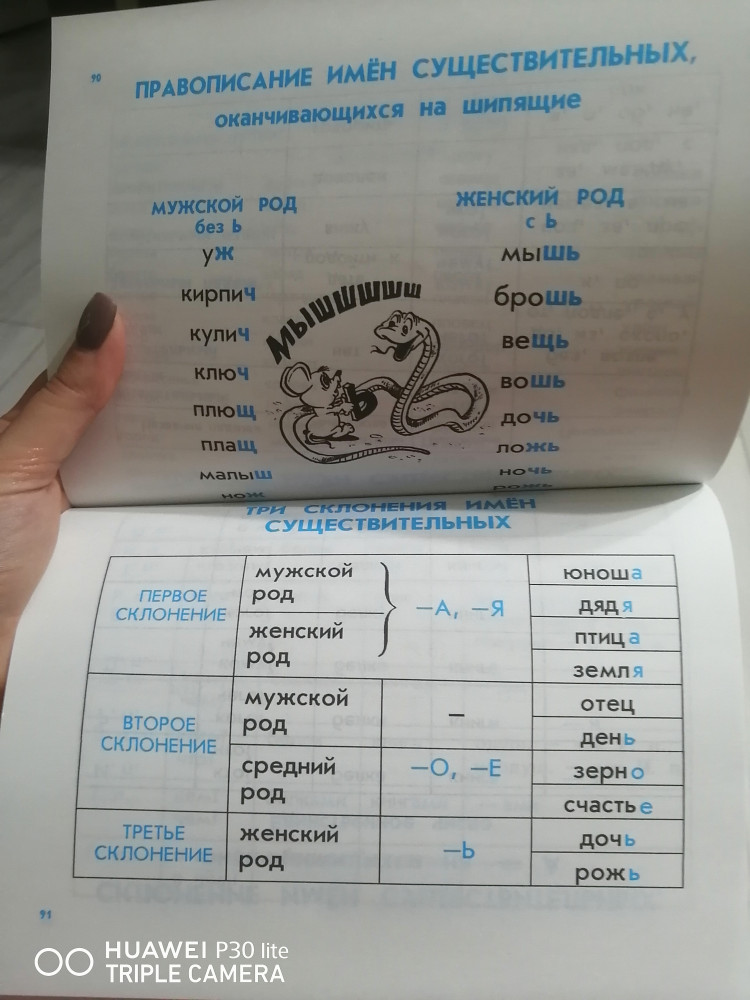 90
ПРАВОПИСАНИЕ ИМЁН СУЩЕСТВИТЕЛЬНЫХ,
оканчивающихся на шипящие
МУЖСКОЙ РОД
без Ь
уж
кирпич
кулич
ключ
плющ
плащ
малыш
нож
МЫШШШШШ
Ь
ЖЕНСКИЙ РОД
с Ь
мышь
брошь
вещь
вошь
дочь
ложь
ночь
рожь
ТРИ СКЛОНЕНИЯ ИМЁН
СУЩЕСТВИТЕЛЬНЫХ
ПЕРВОЕ
СКЛОНЕНИЕ
мужской
род
женский
род
–А, –Я
юноша
дядя
птица
земля
ВТОРОЕ
СКЛОНЕНИЕ
мужской
род
–
отец
день
средний
род
–О, –Е
зерно
счастье
ТРЕТЬЕ
СКЛОНЕНИЕ
женский
род
–Ь
дочь
рожь
91
HUAWEI P30 lite
TRIPLE CAMERA